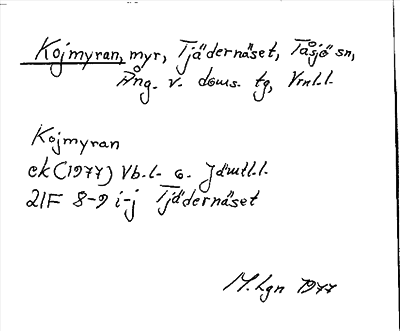 Kojmyran, myr, Tjädernäset, Tåsjö sn,
Ång. v. doms. tg, Vrnl.l.
Kojmyran
ek (1977) Vb.l. o. Jämtl.l.
21F 8-9 i-j Tjädernäset
M.Lgn 1977